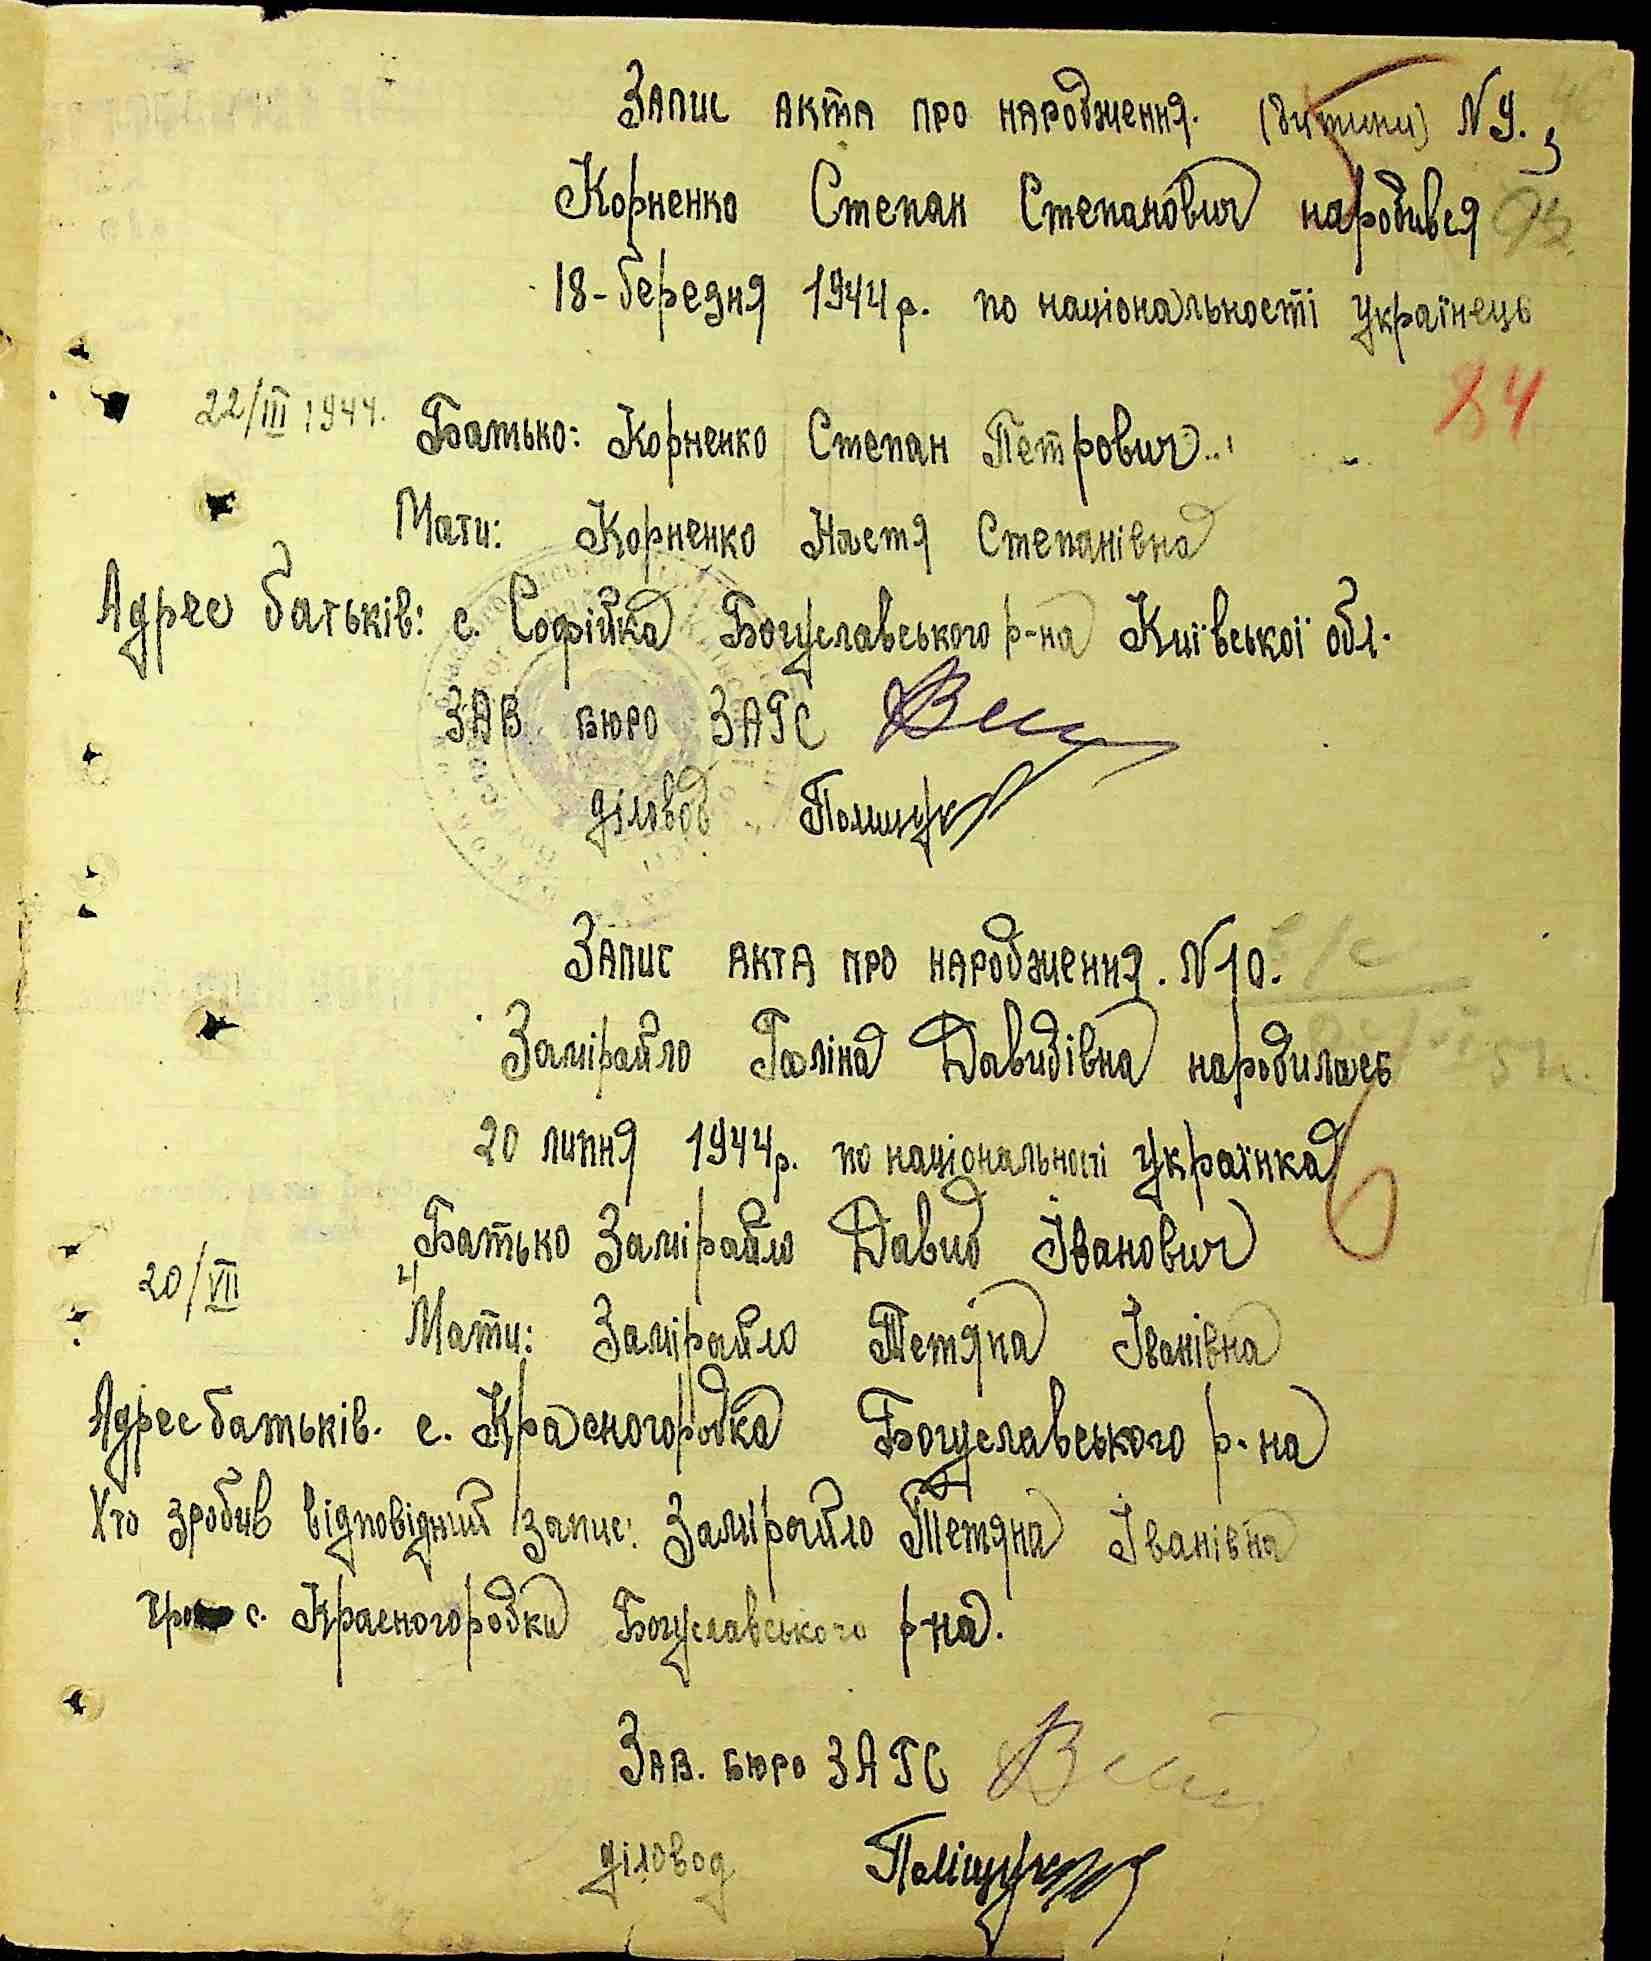 Запис акта про народження. (дитини) N 9.
Корненко Степан Степанович народився
18-березня 1944 р. по національності українець
84
22/III 1944. Батько: Корненко Степан Петрович
Мати: Корненко Настя Степанівна
Адрес батьків: с. Софійка Богуславського р-на Київської обл.
ЗАВ БЮРО ЗАГС
діловод Поліщук
Запис акта про народження. N 10.
Замірайло Галіна Давидівна народилась
20 липня 1944 р. по національності українка
Батько Замірайло Давид Іванович
20/VII
Мати: Замірайло Тетяна Іванівна
Адрес батьків. с. Красногородка Богуславського р-на
Хто зробив відповідний запис: Замірайло Тетяна Іванівна
с. Красногородки Богуславського р-на.
Зав. бюро ЗАГС
діловод Поліщук